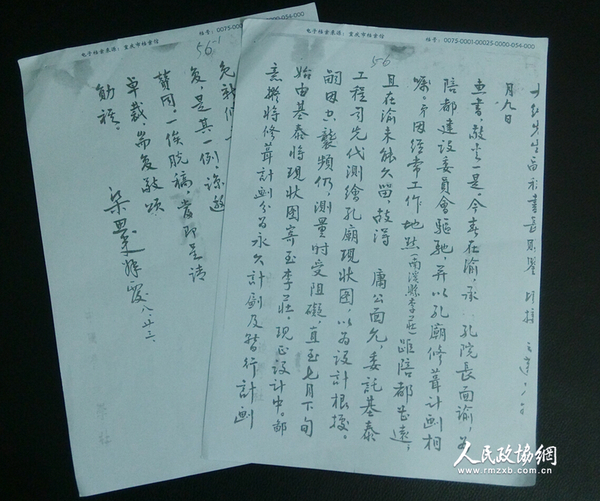 电子档案来源：重庆市档案馆
档号：0075-0001-00025-0000-054-000
56
月九日
惠书，敬悉一是。今春在渝，承 孔院长面谕，为
陪都建设委员會驱驰，并以孔廟修葺计画相
嘱。弟因经常工作地点（南溪縣李莊）距陪都甚遠，
且在渝未能久留，故得 庸公面允，委託基泰
工程司先代測繪孔廟现状图，以为设计根據。
嗣因空襲頻仍，測量时受阻礙，直至七月下旬
始由基泰将现状图寄至李莊。现正设计中。鄙
意擬将修葺计画分为永久计劃及暂行计画
电子档案来源：重庆市档案馆
档号：0075-0001-00025-0000-054-000
56-1
复，是其一例。諒邀
贊同。一俟脱稿，当即呈请
卓裁，耑复敬颂
勋祺。
梁思成 拜覆 八、廿三、
人民政协網
www.rmzxb.com.cn